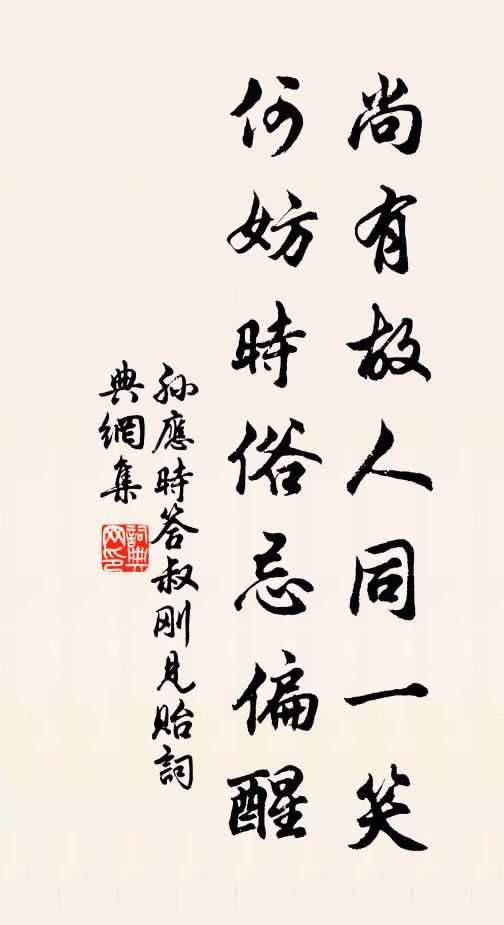 尚有故人同一笑
何妨時俗忌偏醒
孫應時答叔剛見貽詞
典網集
詞典網印